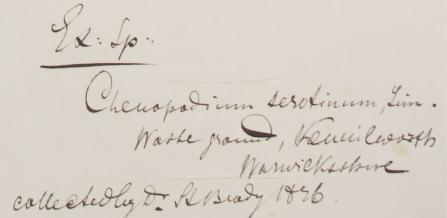 Ex: Sp:
Chenopodium serotinum, Linn.
Waste ground, Kenilworth
Warwickshire
collected by Dr. St Brody 1876.